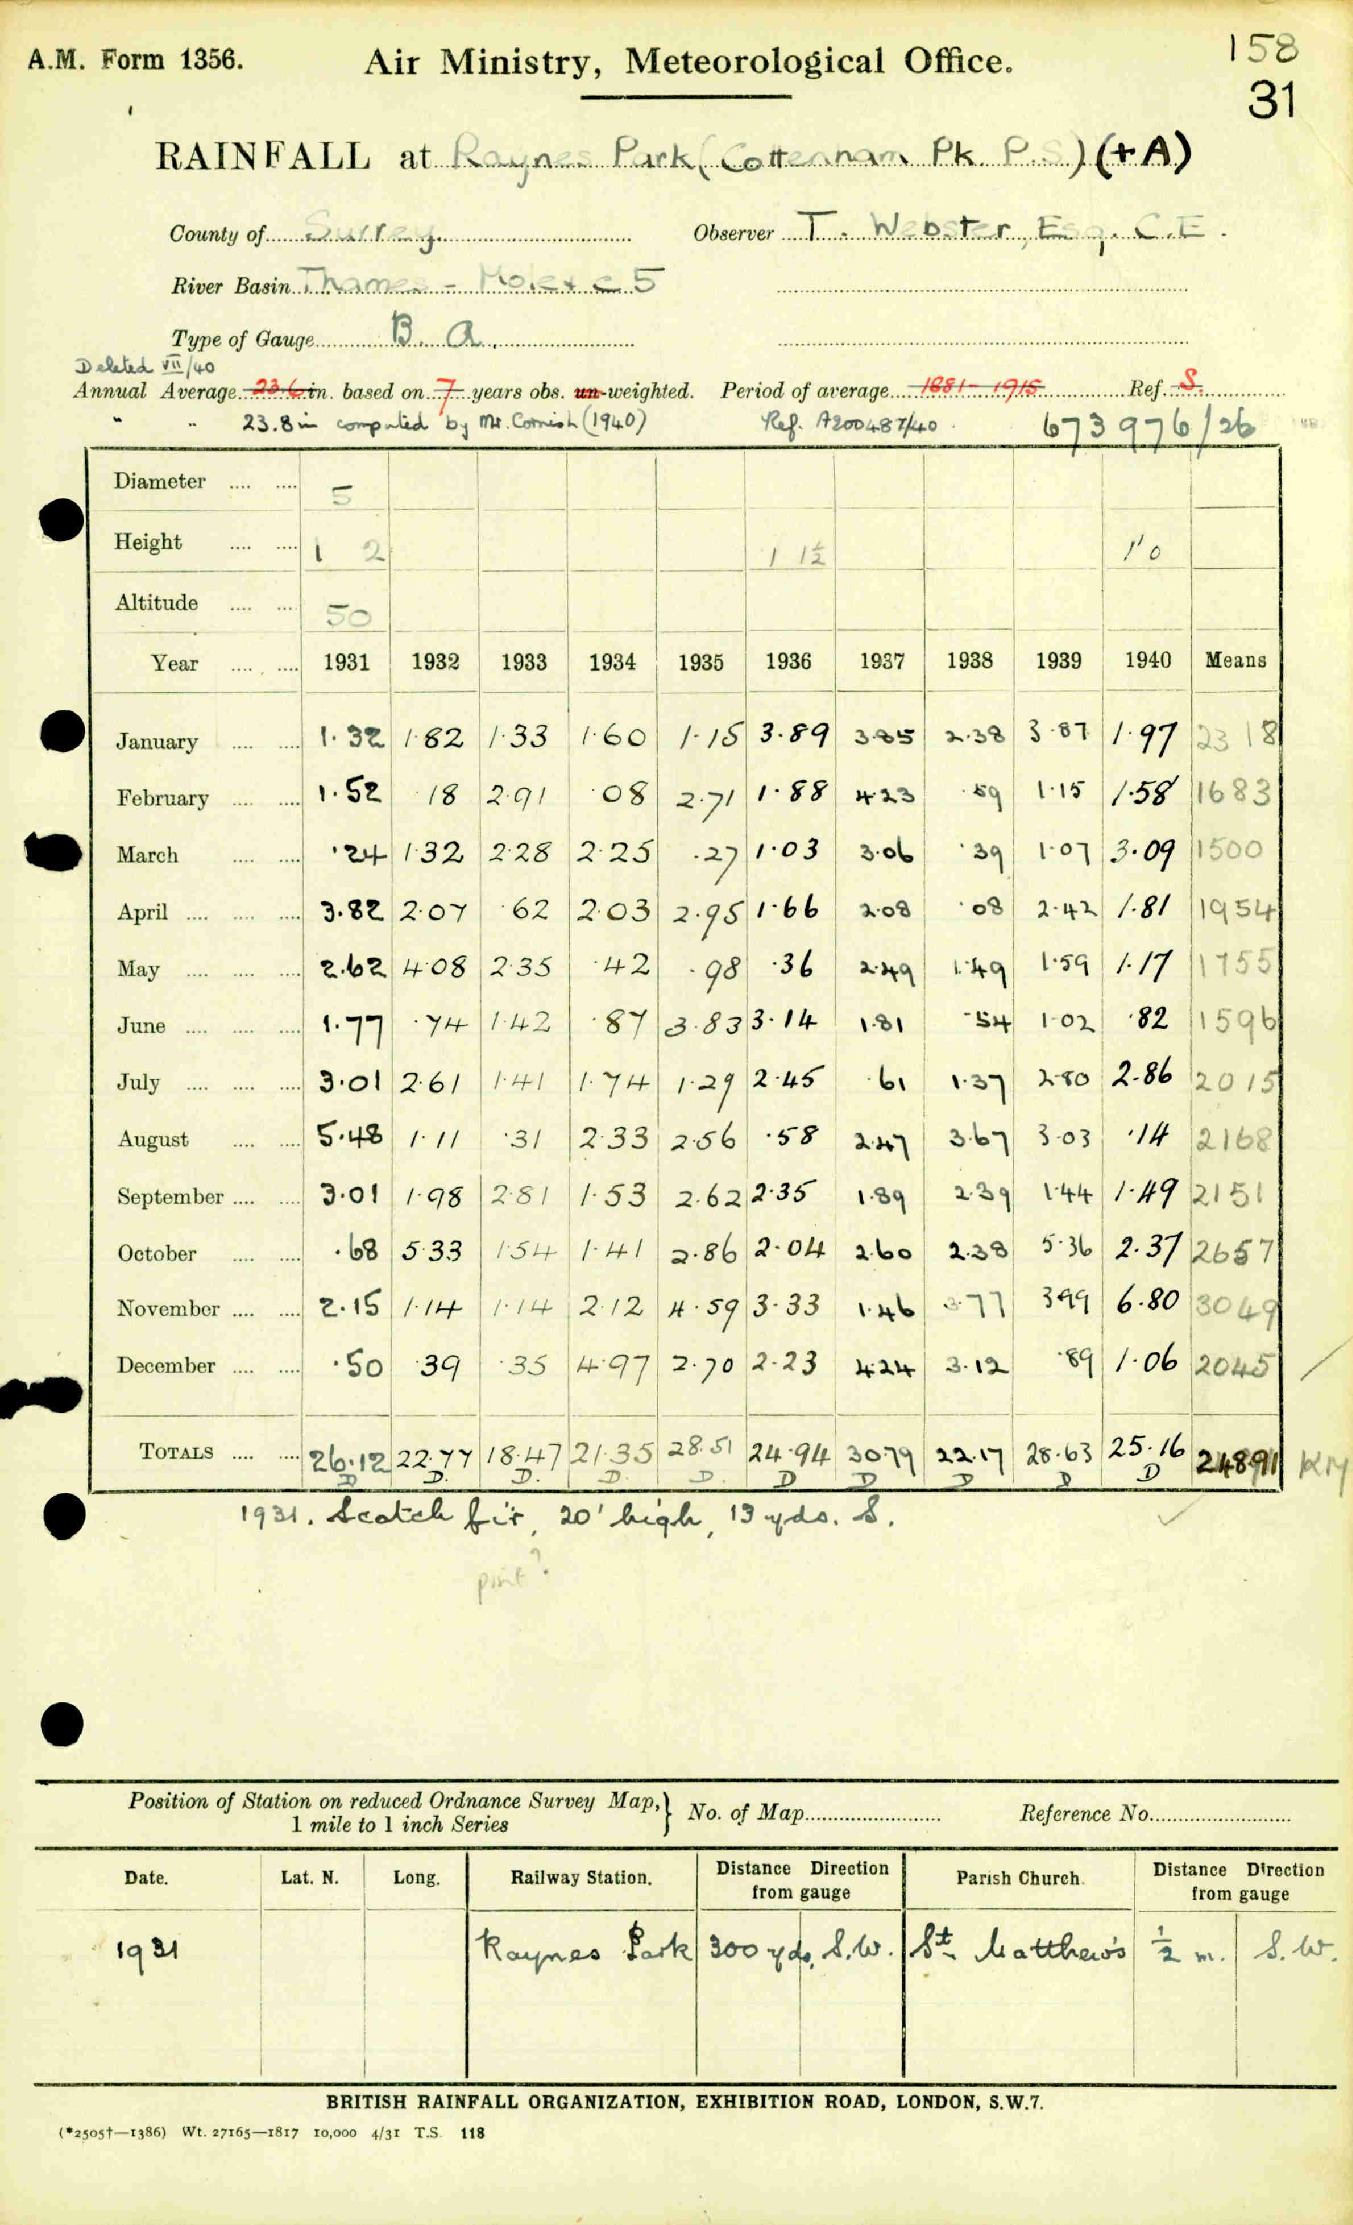 A.M. Form 1356.
Air Ministry, Meteorological Office.
158
31
RAINFALL at Raynes Park (Cottenham Pk. P.S) (+A)
County of Surrey. Observer T. Webster, Esq. C.E.
River Basin Thames - Mole &c 5
Type of Gauge B. a.
Deleted VII/40
Annual Average 23.6 in. based on 7 years obs. un-weighted. Period of average 1881-1915 Ref. S.
" " 23.8 in computed by Mr. Cornish (1940) Ref. A200487/40 673976/26
Diameter 5
Height 1 2 1 1½ 1'0
Altitude 50
Year 1931 1932 1933 1934 1935 1936 1937 1938 1939 1940 Means
January 1.32 1.82 1.33 1.60 1.15 3.89 3.85 2.38 3.87 1.97 2318
February 1.52 18 2.91 .08 2.71 1.88 4.23 .59 1.15 1.58 1683
March .24 1.32 2.28 2.25 .27 1.03 3.06 .39 1.07 3.09 1500
April 3.82 2.07 .62 2.03 2.95 1.66 2.08 .08 2.42 1.81 1954
May 2.62 4.08 2.35 .42 .98 .36 2.49 1.49 1.59 1.17 1755
June 1.77 .74 1.42 .87 3.83 3.14 1.81 .54 1.02 .82 1596
July 3.01 2.61 1.41 1.74 1.29 2.45 .61 1.37 2.80 2.86 2015
August 5.48 1.11 .31 2.33 2.56 .58 2.47 3.67 3.03 .14 2168
September 3.01 1.98 2.81 1.53 2.62 2.35 1.89 2.39 1.44 1.49 2151
October .68 5.33 1.54 1.41 2.86 2.04 2.60 2.38 5.36 2.37 2657
November 2.15 1.14 1.14 2.12 4.59 3.33 1.46 3.77 3.99 6.80 3049
December .50 .39 .35 4.97 2.70 2.23 4.24 3.12 .89 1.06 2045
TOTALS 26.12 22.77 18.47 21.35 28.51 24.94 30.79 22.17 28.63 25.16 24891
D D. D. D. D. D D D D D
1931. Scotch fir, 20' high, 13 yds. S.
Position of Station on reduced Ordnance Survey Map, } No. of Map Reference No.
1 mile to 1 inch Series
Date. Lat. N. Long. Railway Station. Distance Direction from gauge Parish Church. Distance Direction from gauge
1931 Raynes Park 300 yds. S.W. St. Matthew's ½ m. S.W.
BRITISH RAINFALL ORGANIZATION, EXHIBITION ROAD, LONDON, S.W.7.
(*2505†—1386) Wt. 27165—1817 10,000 4/31 T.S. 118